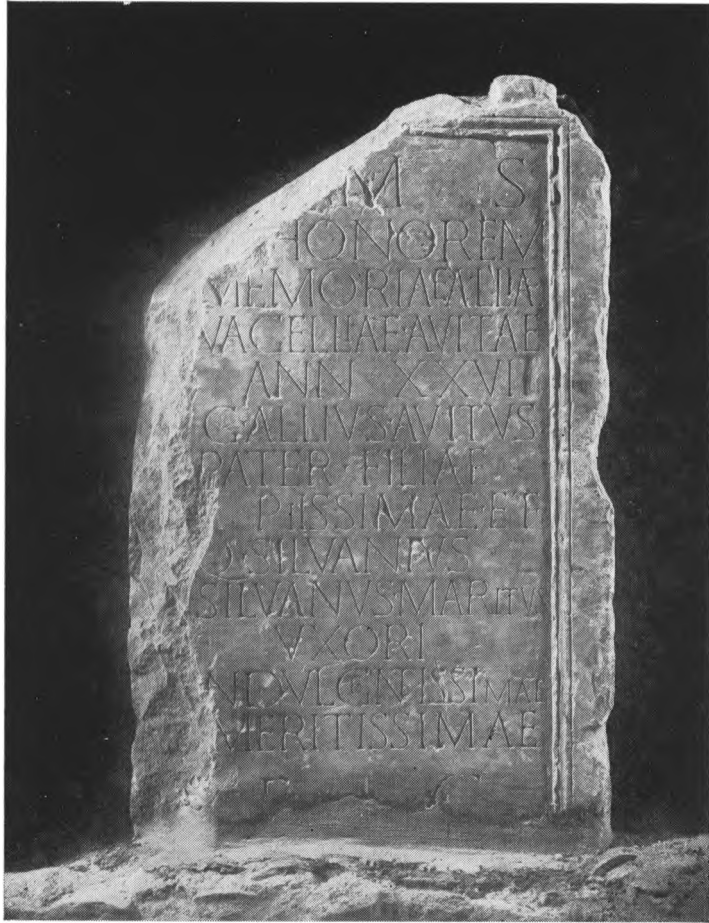 M S
HONOREM
MEMORIAE ALLIA
VAGELLIAE AVITAE
ANN XXVII
C ALLIVS AVITVS
PATER FILIAE
PIISSIMAE ET
SILVANIVS
SILVANVS MARITVS
VXORI
NDVLGENTISSIMAE
MERITISSIMAE